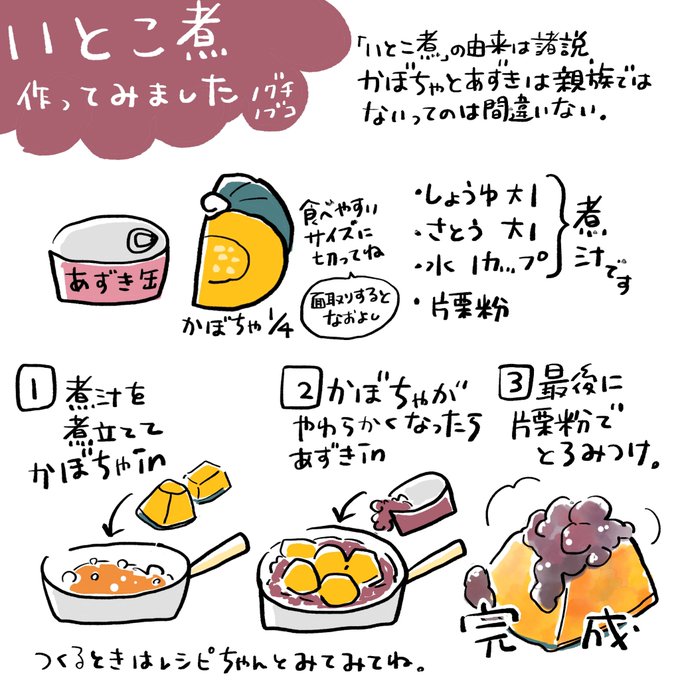 いとこ煮
作ってみました
ノグチ
ノブコ
「いとこ煮」の由来は諸説。
かぼちゃとあずきは親族では
ないってのは間違いない。
あずき缶
かぼちゃ1/4
食べやすい
サイズに
切ってね
面取りすると
なおよし
・しょうゆ 大1
・さとう 大1
・水 1カップ
煮汁です
・片栗粉
1 煮汁を
煮立てて
かぼちゃin
2 かぼちゃが
やわらかくなったら
あずきin
3 最後に
片栗粉で
とろみつけ。
完成
つくるときはレシピちゃんとみてみてね。